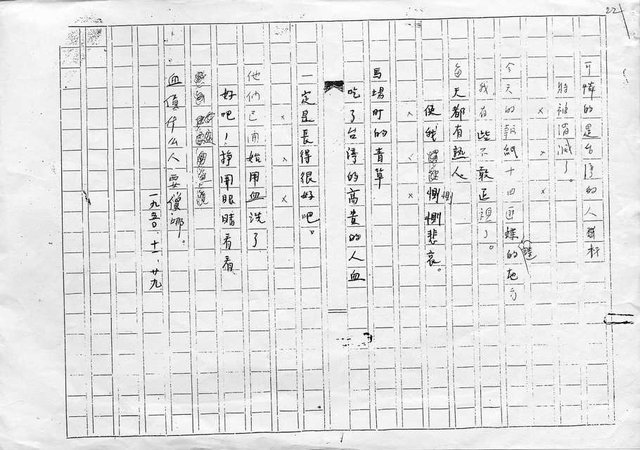 22
可憐的是台灣的人群
將被消滅了。
× × ×
今天的報紙十四
我有些不敢正視了。
每天都有熟人
使我惻惻悲哀。
× × ×
馬場町的青草
吃了台灣的高貴的人血
一定是長得很好吧。
× × ×
他們已開始用血洗了
好吧！掙開眼睛看看
血債什么人要償哪。
一九五〇、十一、廿九